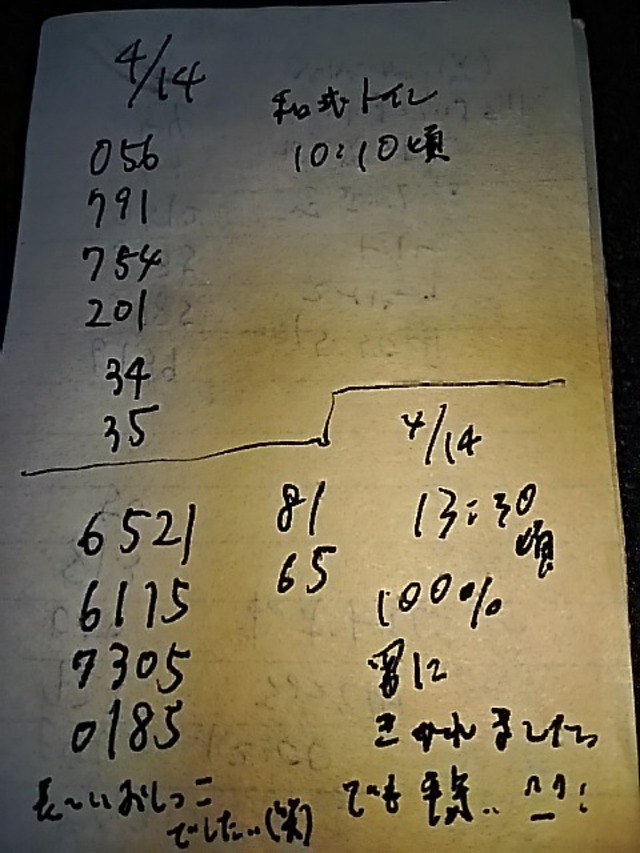 4/14
和式トイレ
10:10頃
056
791
754
201
34
35
4/14
13:30
頃
100%
男に
きかれました
でも平気..
6521
6175
7305
0185
81
65
長〜いおしっこ
でした..(笑)